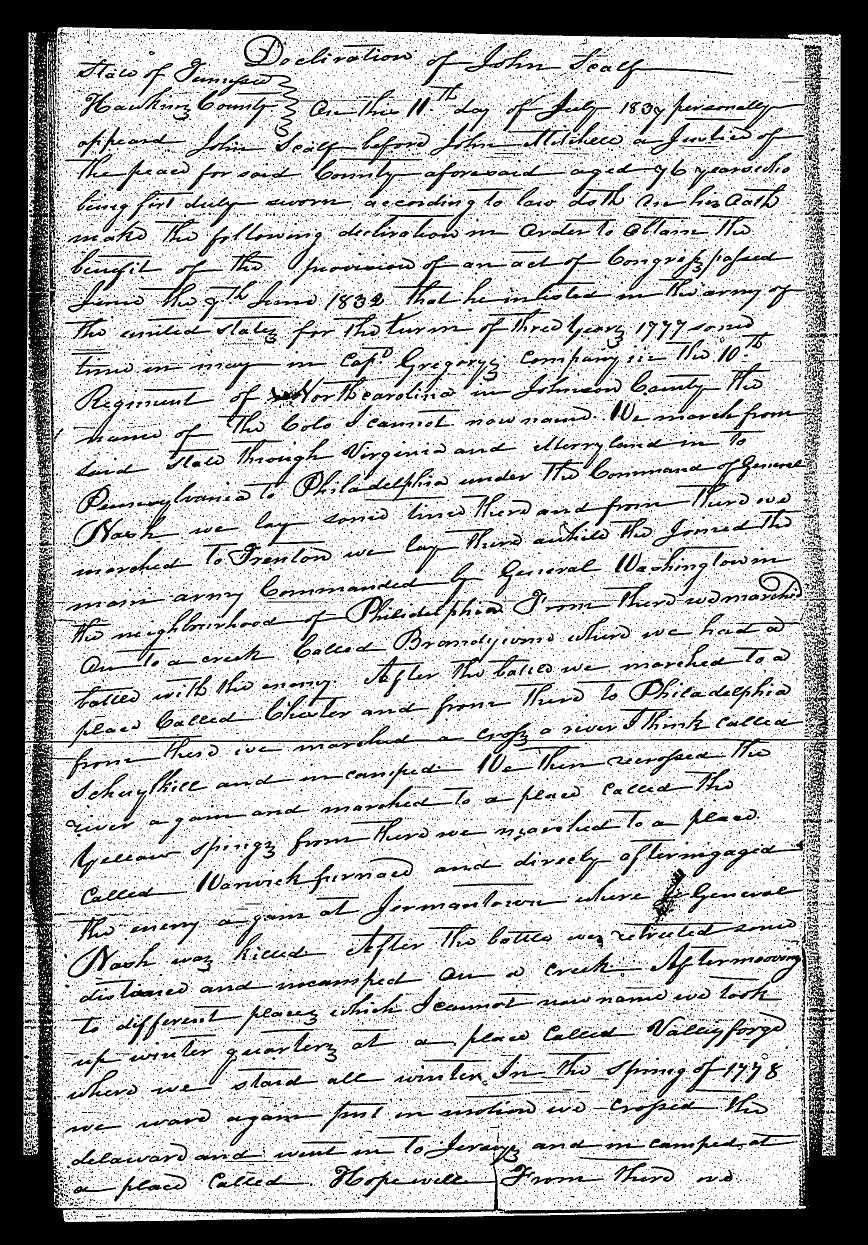 Decliration of John Scalf
State of Tennessee
Hawkins County } On this 11th day of July 1837 personally
appeard John Scalf before John Mitchell a Justice of
the peace for said County aforesaid aged 76 years who
being first duly sworn according to law doth on his oath
make the following decliration in order to obtain the
benefit of the provision of an act of Congress passed
June the 7th June 1832 that he inlisted in the army of
the united states for the turm of three years 1777 some
time in may in Capt Gregorys company in the 10th
Regiment of Northcarolina in Johnson County the
name of the Colo I cannot now name. We march from
said state through Virginia and Merryland in to
Pennsylvania to Philadelphia under the Command of General
Nash we lay some time there and from there we
marched to Trenton we lay there awhile the Joined the
main army Commanded by General Washington in
the neighbourhood of Philidelphia From there we marched
on to a creek Called Brandywine where we had a
battle with the enemy. After the battle we marched to a
place Called Chester and from there to Philadelphia
from there we marched a cross a river I think called
Schuylkill and in camped. We then recrossed the
river again and marched to a place called the
Yellow springs from there we marched to a place
Called Warwick furnace and directly after ingaged
the enemy again at Jermantown where General
Nash was killed After the battle we retreted some
distance and incamped on a creek. After mooving
to different places which I cannot now name we took
up winter quarters at a place Called Valleyforge
where we staid all winter. In the spring of 1778
we ware again put in motion we crossed the
delaware and went in to Jersey and in camped at
a place Called Hopewell From there we